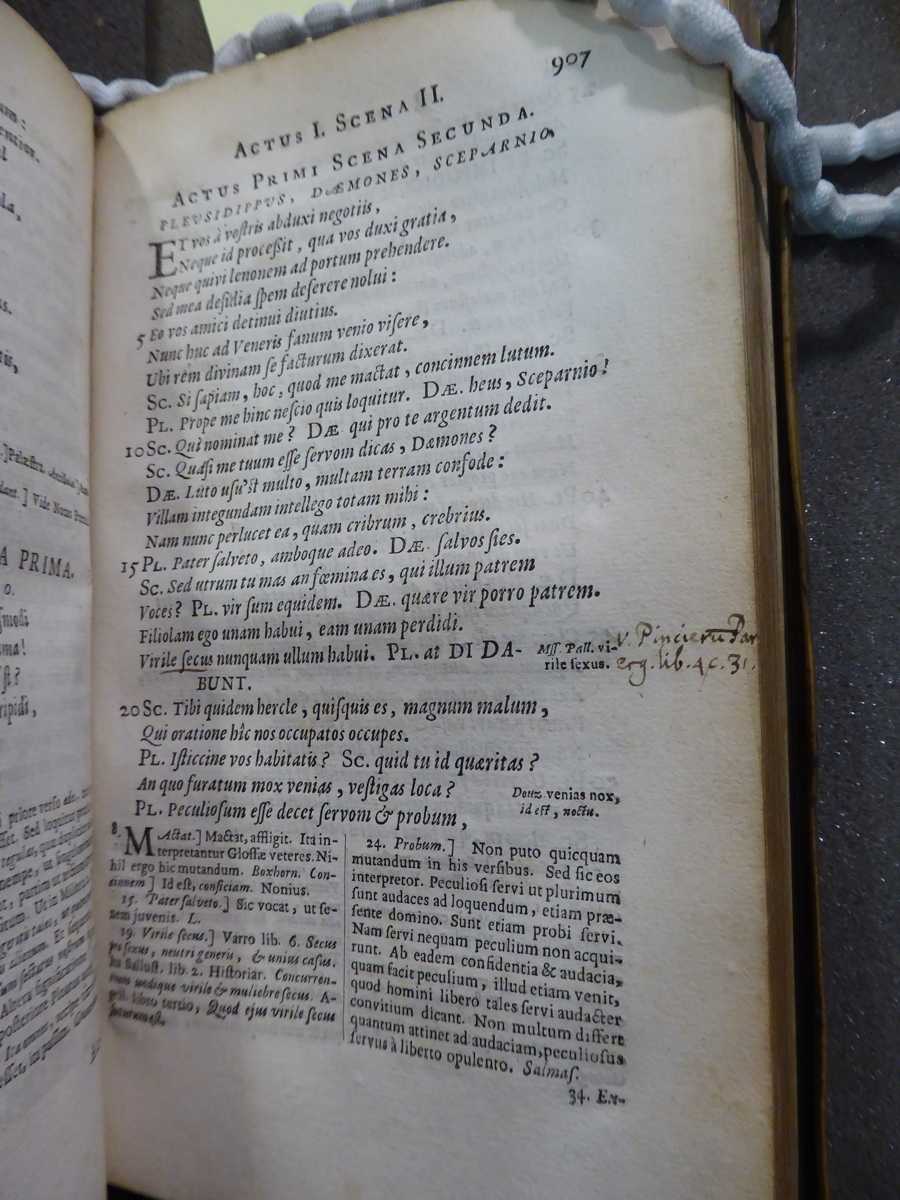 907
ACTUS I. SCENA II.
ACTUS PRIMI SCENA SECUNDA.
PLEUSIDIPPUS, DÆMONES, SCEPARNIO.
ET vos à vestris abduxi negotiis,
Neque id processit, qua vos duxi gratia,
Neque quivi lenonem ad portum prehendere.
Sed mea desidia spem deserere nolui:
5 Eo vos amici detinui diutius.
Nunc huc ad Veneris fanum venio visere,
Ubi rem divinam se facturum dixerat.
SC. Si sapiam, hoc, quod me mactat, concinnem lutum.
PL. Prope me hinc nescio quis loquitur. DÆ. heus, Sceparnio!
10 SC. Quì nominat me? DÆ. qui pro te argentum dedit.
SC. Quasi me tuum esse servom dicas, Dæmones?
DÆ. Luto usu'st multo, multam terram confode:
Villam integundam intellego totam mihi:
Nam nunc perlucet ea, quam cribrum, crebrius.
15 PL. Pater salveto, amboque adeo. DÆ. salvos sies.
SC. Sed utrum tu mas an fœmina es, qui illum patrem
Voces? PL. vir sum equidem. DÆ. quære vir porro patrem.
Filiolam ego unam habui, eam unam perdidi.
Virile secus nunquam ullum habui. PL. at DI DA-
BUNT.
Mss. Pall. vi-
rile sexus.
v. Pincieru Par
erg. lib. 4 c. 31.
20 SC. Tibi quidem hercle, quisquis es, magnum malum,
Qui oratione hîc nos occupatos occupes.
PL. Isticcine vos habitatis? SC. quid tu id quæritas?
An quo furatum mox venias, vestigas loca?
Douz. venias nox,
id est, noctu.
PL. Peculiosum esse decet servom & probum,
8. MActat.] Mactat, affligit. Ita in-
terpretantur Glossæ veteres. Ni-
hil ergo hic mutandum. Boxhorn. Con-
cinnem] Id est, conficiam. Nonius.
15. Pater salveto.] Sic vocat, ut se-
nem juvenis. L.
19. Virile secus.] Varro lib. 6. Secus
pro sexus, neutri generis, & unius casus.
Ita Sallust. lib. 2. Historiar. Concurren-
tium undique virile & muliebre secus. A-
pul. libro tertio, Quod ejus virile secus
futurum est.
24. Probum.] Non puto quicquam
mutandum in his versibus. Sed sic eos
interpretor. Peculiosi servi ut plurimum
sunt audaces ad loquendum, etiam præ-
sente domino. Sunt etiam probi servi.
Nam servi nequam peculium non acqui-
runt. Ab eadem confidentia & audacia,
quam facit peculium, illud etiam venit,
quod homini libero tales servi audacter
convitium dicant. Non multum differt
quantum attinet ad audaciam, peculiosus
servus à liberto opulento. Salmas.
34. Ex-